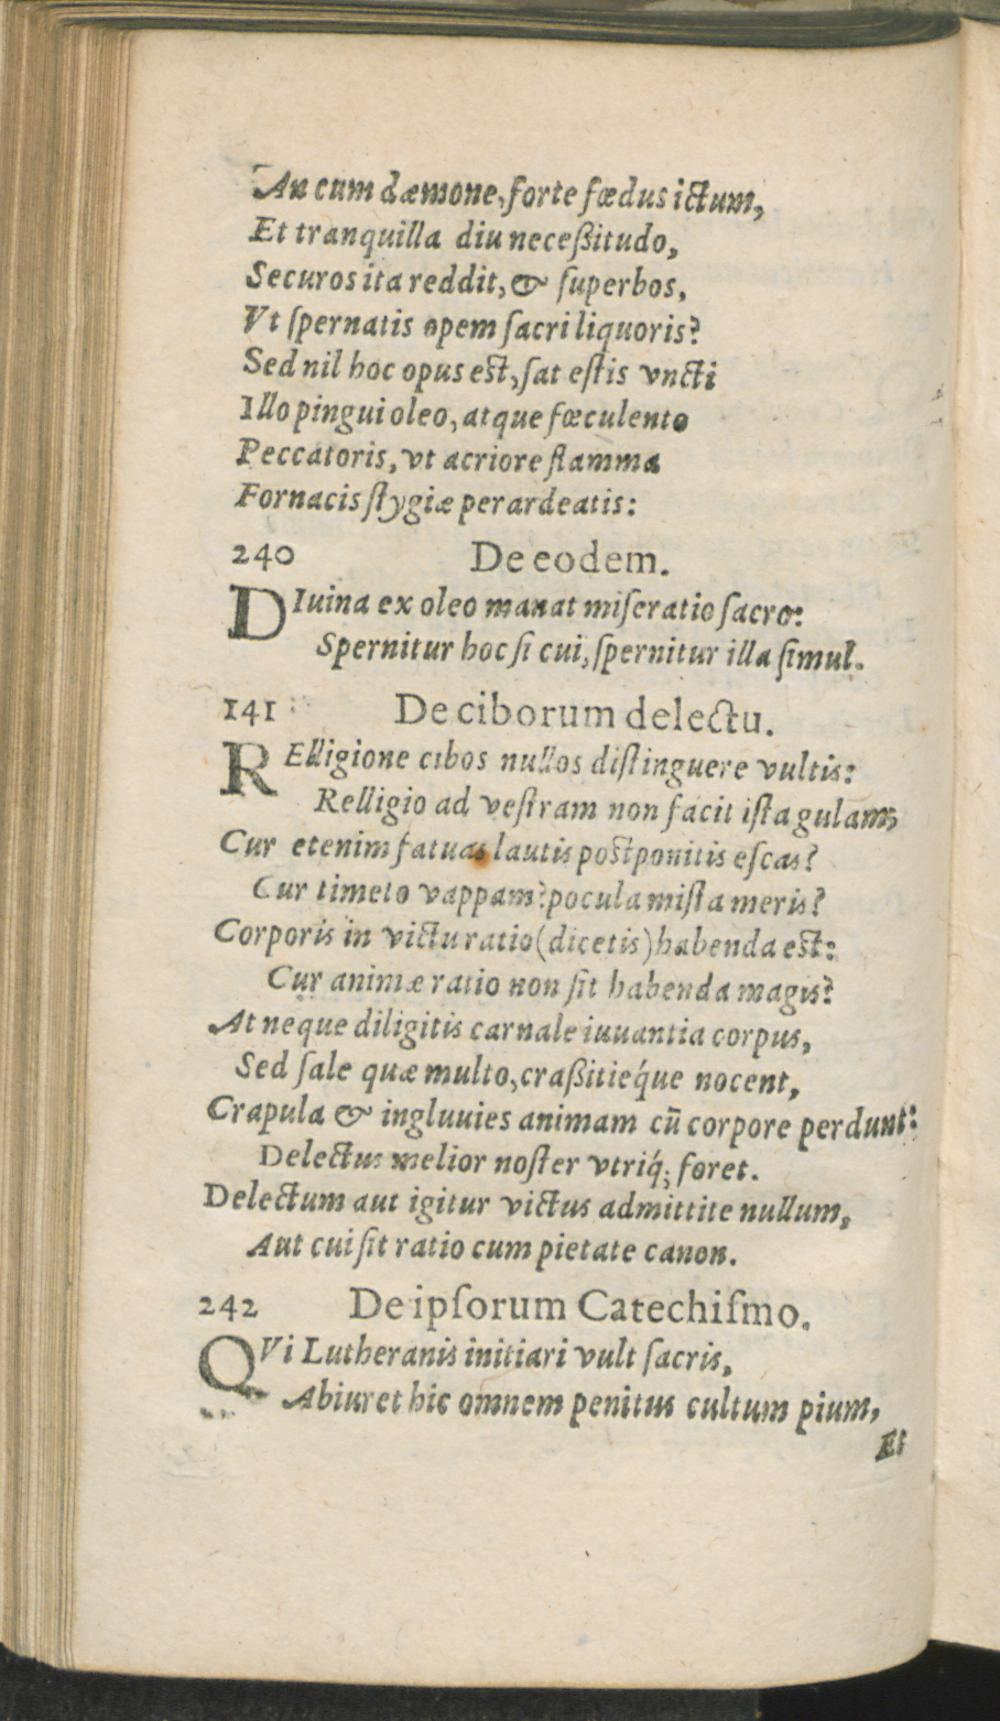 An cum dæmone, forte fœdus ictum,
Et tranquilla diu neceßitudo,
Securos ita reddit, & ſuperbos,
Vt ſpernatis opem ſacri liquoris?
Sed nil hoc opus est, ſat eſtis vncti
Illo pingui oleo, atque fœculento
Peccatoris, vt acriore flamma
Fornacis ſtygiæ perardeatis:
240 De eodem.
DIuina ex oleo manat miſeratio ſacro:
Spernitur hoc ſi cui, ſpernitur illa ſimul.
141 De ciborum delectu.
RElligione cibos nullos diſtinguere vultis:
Relligio ad veſtram non facit iſta gulam;
Cur etenim fatuas lautis postponitis eſcas?
Cur timeto vappam? pocula miſta meris?
Corporis in victu ratio (dicetis) habenda est:
Cur animæ ratio non ſit habenda magis?
At neque diligitis carnale iuuantia corpus,
Sed ſale quæ multo, craßitieq́ue nocent,
Crapula & ingluuies animam cū corpore perdunt:
Delectus melior noſter vtriq́; foret.
Delectum aut igitur victus admittite nullum,
Aut cui ſit ratio cum pietate canon.
242 De ipſorum Catechiſmo.
QVi Lutheranis initiari vult ſacris,
Abiuret hic omnem penitus cultum pium,
Et